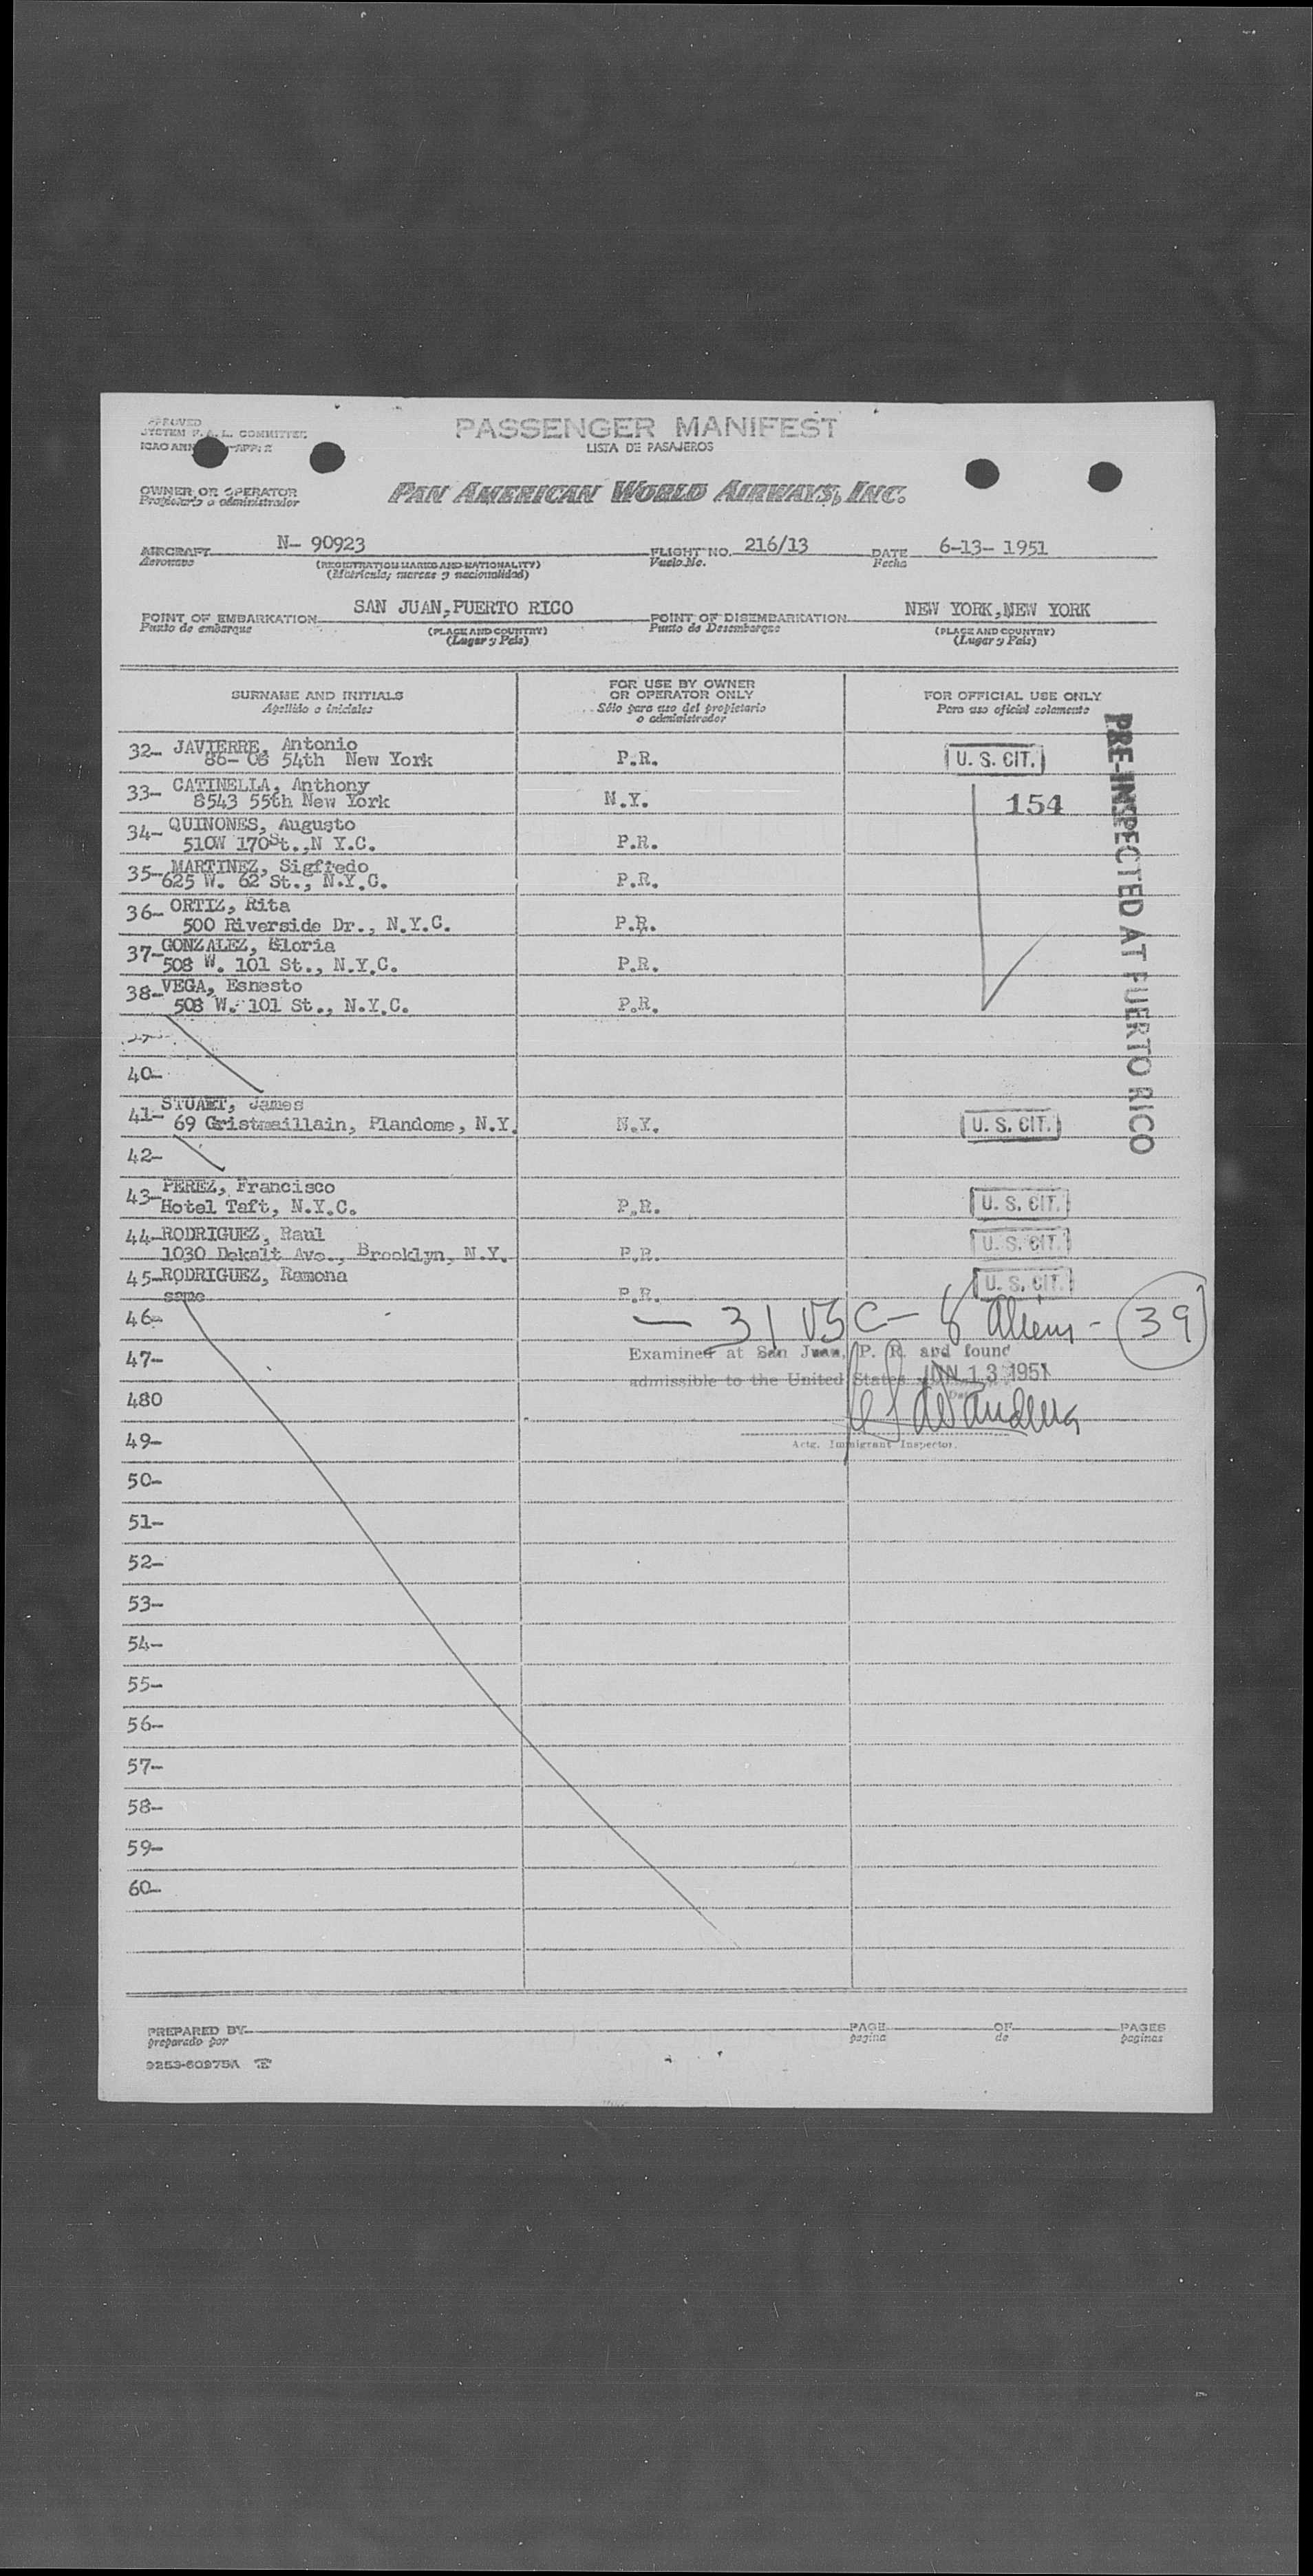 PASSENGER MANIFEST
LISTA DE PASAJEROS
OWNER OR OPERATOR
Propietario o administrador
PAN AMERICAN WORLD AIRWAYS, INC.
AIRCRAFT N- 90923 FLIGHT NO. 216/13 DATE 6-13- 1951
Aeronave (REGISTRATION MARKS AND NATIONALITY) Vuelo No. Fecha
(Matrícula, marcas y nacionalidad)
POINT OF EMBARKATION SAN JUAN,PUERTO RICO POINT OF DISEMBARKATION NEW YORK,NEW YORK
Punto de embarque (PLACE AND COUNTRY) Punto de Desembarque (PLACE AND COUNTRY)
(Lugar y País) (Lugar y País)
SURNAME AND INITIALS FOR USE BY OWNER OR OPERATOR ONLY FOR OFFICIAL USE ONLY
Apellido e iniciales Sólo para uso del propietario o administrador Para uso oficial solamente
PRE-INSPECTED AT PUERTO RICO
32- JAVIERRE, Antonio
86- 08 54th New York P.R. U. S. CIT.
33- CATINELLA, Anthony
8543 55th New York N.Y. 154
34- QUINONES, Augusto
510W 170St.,N Y.C. P.R.
35- MARTINEZ, Sigfredo
625 W. 62 St., N.Y.C. P.R.
36- ORTIZ, Rita
500 Riverside Dr., N.Y.C. P.R.
37- GONZALEZ, Gloria
508 W. 101 St., N.Y.C. P.R.
38- VEGA, Esnesto
508 W. 101 St., N.Y.C. P.R.
40-
41- STUART, James
69 Plandome, N.Y. N.Y. U. S. CIT.
42-
43- PEREZ, Francisco
Hotel Taft, N.Y.C. P.R. U. S. CIT.
44- RODRIGUEZ, Raul
1030 Dekalt Ave., Brooklyn, N.Y. P.R. U. S. CIT.
45- RODRIGUEZ, Ramona
same P.R. U. S. CIT.
46- — 31 USC - 8 Aliens - 39
47- Examined at San Juan, P. R. and found
admissible to the United States JUN 13 1951
480
49- Actg. Immigrant Inspector.
50-
51-
52-
53-
54-
55-
56-
57-
58-
59-
60-
PREPARED BY PAGE OF PAGES
preparado por pagina de paginas
9253-60975A